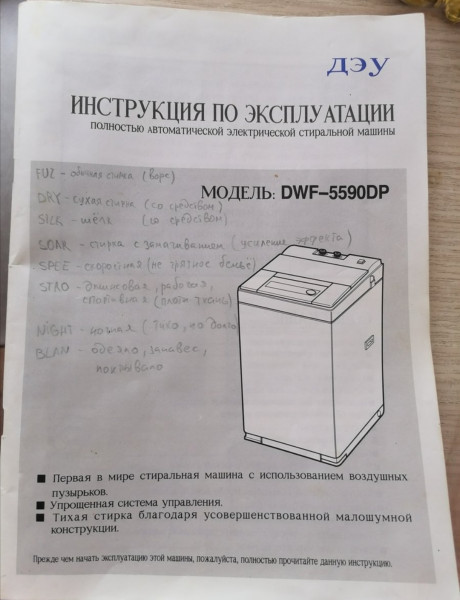 ДЭУ
ИНСТРУКЦИЯ ПО ЭКСПЛУАТАЦИИ
ПОЛНОСТЬЮ АВТОМАТИЧЕСКОЙ ЭЛЕКТРИЧЕСКОЙ СТИРАЛЬНОЙ МАШИНЫ
FUZ - обычная стирка (ворс)
МОДЕЛЬ: DWF-5590DP
DRY - сухая стирка (со средством)
SILK - шёлк (со средством)
SOAK - стирка с замачиванием (усиление эффекта)
SPEE - скоростная (не грязное бельё)
STAD - джинсовая, рабочая,
спортивная (плотн. ткань)
NIGHT - ночная (тихо, но долго)
BLAN - одеяло, занавес,
покрывало
■ Первая в мире стиральная машина с использованием воздушных
пузырьков.
■ Упрощенная система управления.
■ Тихая стирка благодаря усовершенствованной малошумной
конструкции.
Прежде чем начать эксплуатацию этой машины, пожалуйста, полностью прочитайте данную инструкцию.